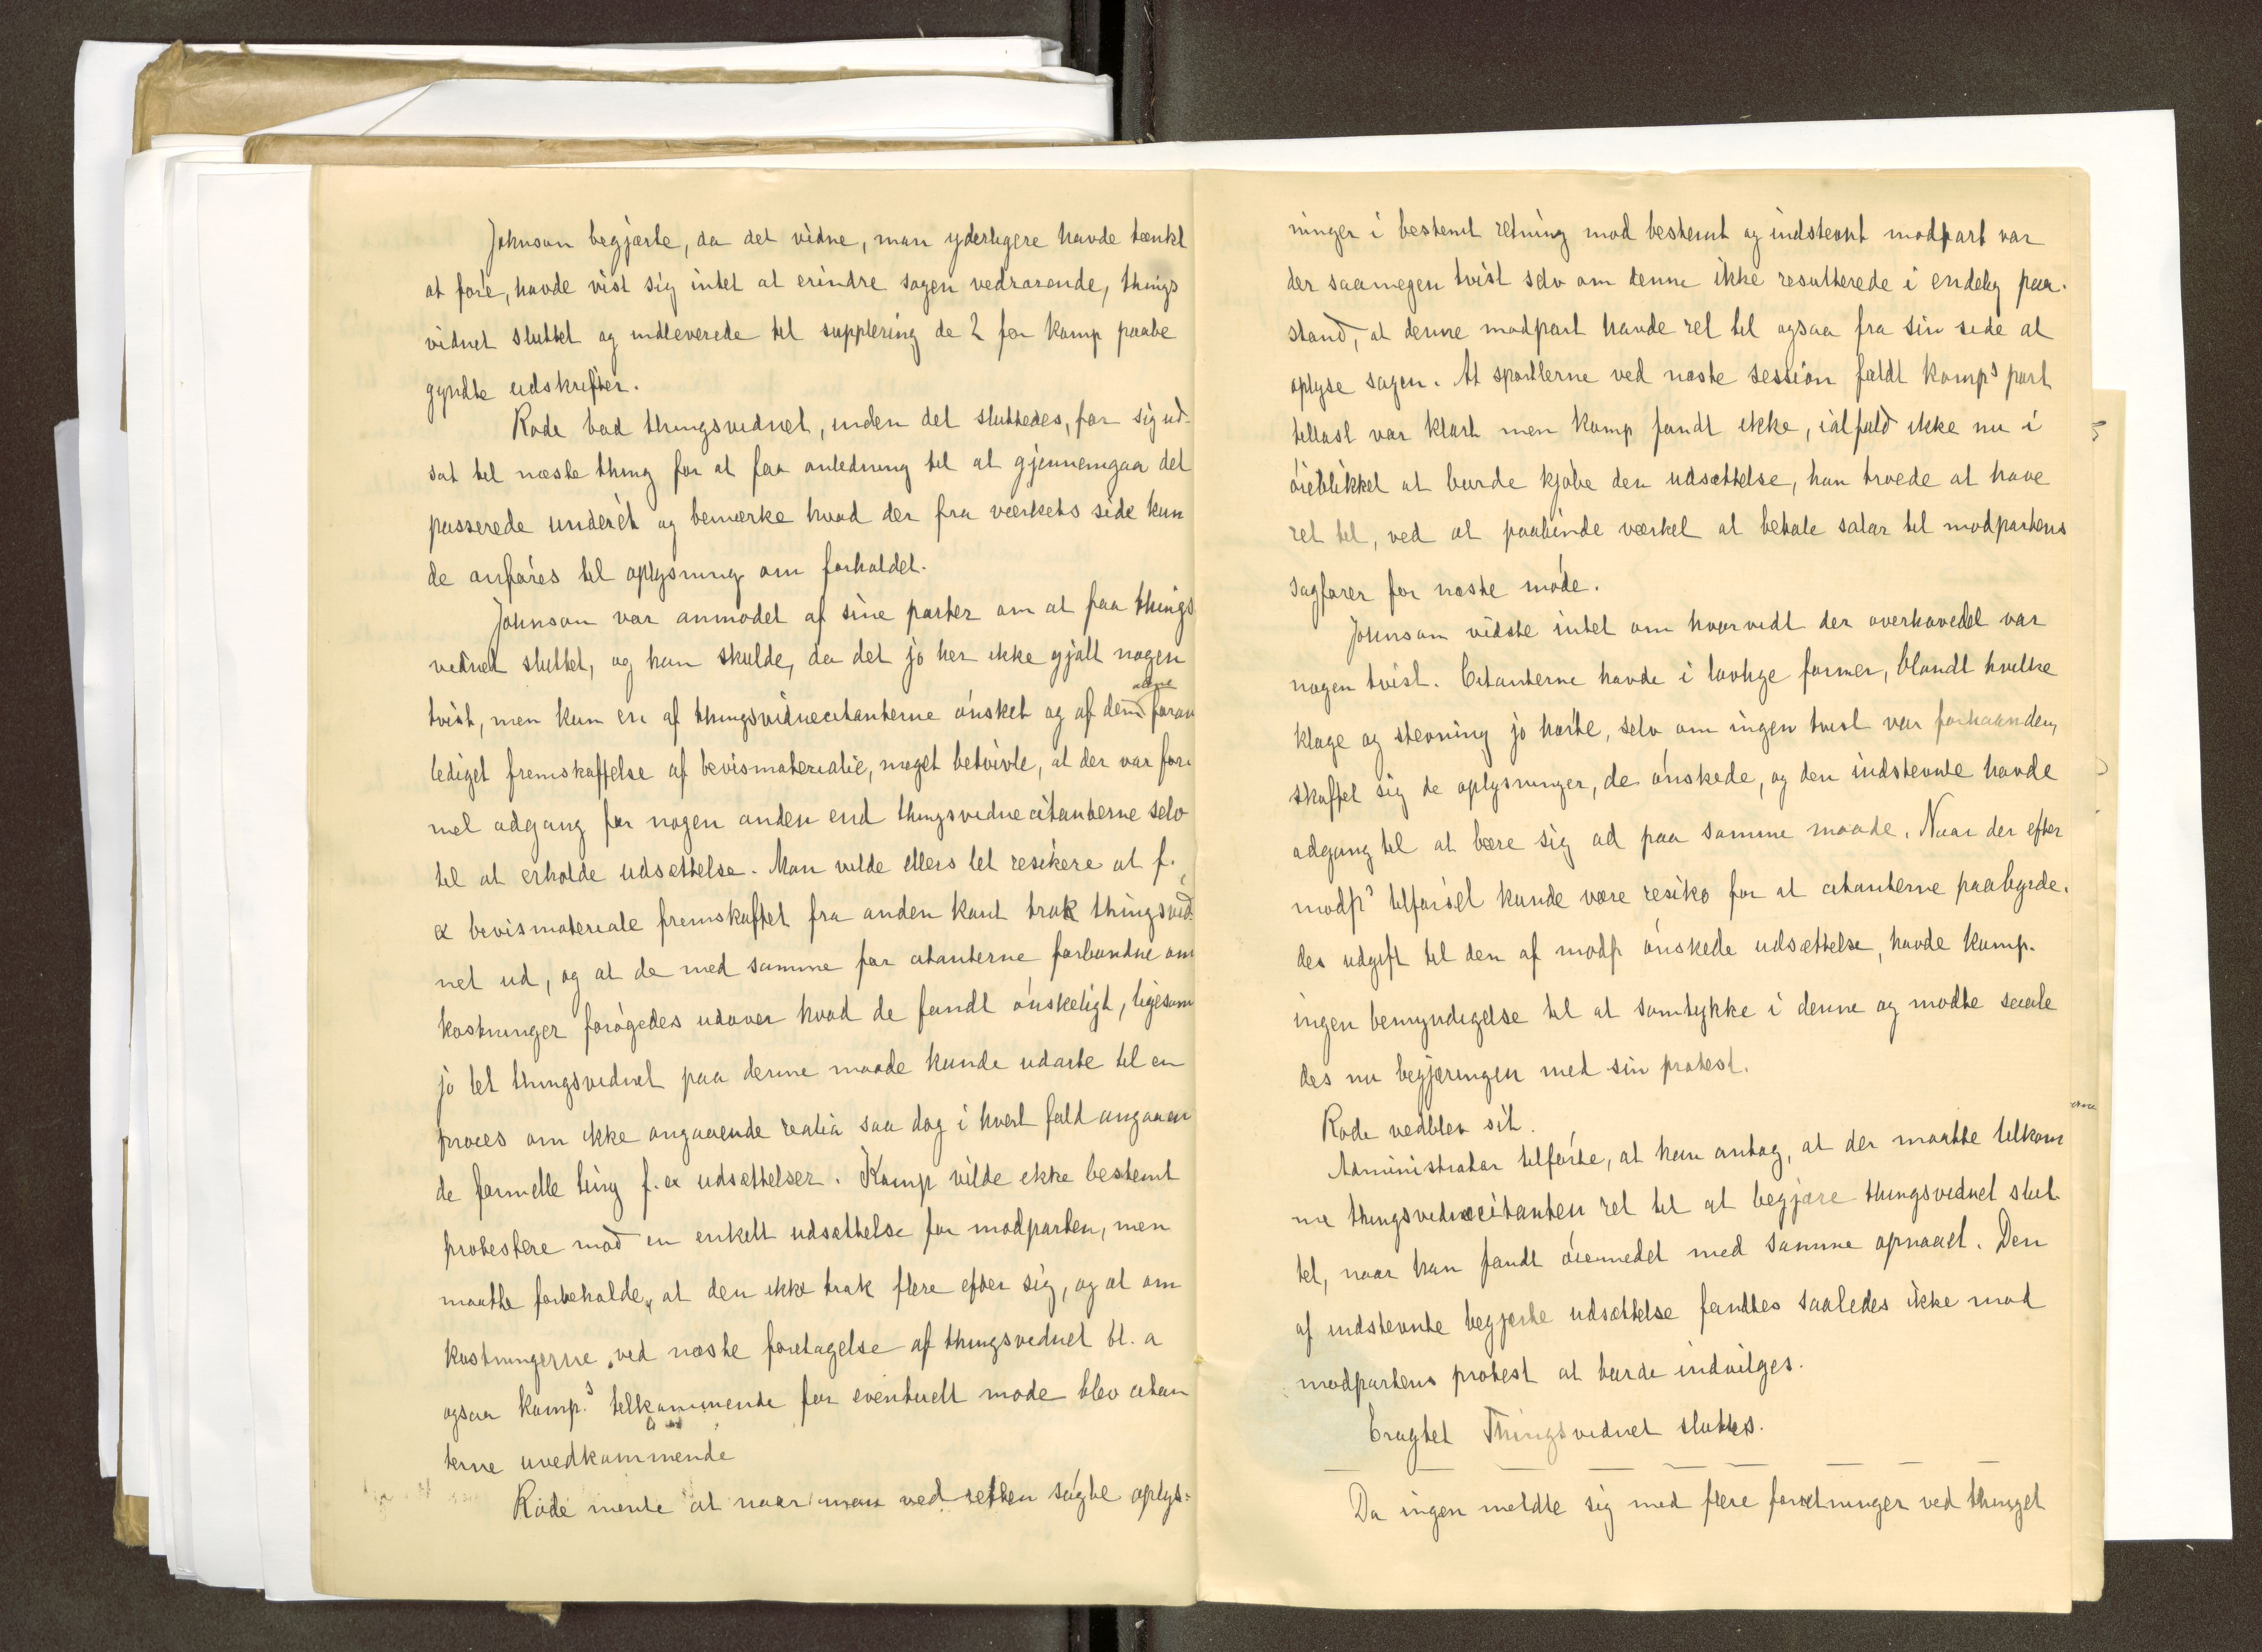 Johnson begjærte, da det vidne, man yderligere havde tænkt
at føre, havde vist sig intet at erindre sagen vedrørende, things
vidnet sluttet og indleverede til supplering de 2 før komp paabe
gyndte udskrifter.
Rode bad thingsvidnet, inden det sluttedes, for sig ud-
sat til næste thing for at faa anledning til at gjennemgaa det
passerede underet og bemærke hvad der fra værkets side kun
de anføres til oplysning om forholdet.
Johnson var anmodet af sine parter om at faa things
vidnet sluttet, og han skulde, da det jo her ikke gjalt nogen
tvist, men kun en af thingsvidnecitanterne ønsket og af dem alene foran
lediget fremskaffelse af bevismaterialie, meget betvivle, at der var for
mel adgang for nogen anden end thingsvidnecitanterne selv
til at erholde udsættelse. Man vilde ellers let resikere at f.
ex bevismateriale fremskaffet fra anden kant trak thingsvid-
net ud, og at de med samme for citanterne forbundne om
kostninger forøgedes udover hvad de fandt ønskeligt, ligesom
jo let thingsvidnet paa denne maade kunde udarte til en
proces om ikke angaaende realia saa dog i hvert fald angaaen
de formelle ting f. ex udsættelser. Komp vilde ikke bestemt
protestere mod en enkelt udsættelse for modparten, men
maatte forbeholde, at den ikke trak flere efter sig, og at om
kostningerne ved næste foretagelse af thingsvidnet bl. a
ogsaa komp.s tilkommende for eventuelt møde blev citan
terne uvedkommende
Rode mente at naar man ved retten søgte oplys-
ninger i bestemt retning mod bestemt og indstevnt modpart var
der saamegen tvist selv om denne ikke resulterede i endelig paa-
stand, at denne modpart havde ret til ogsaa fra sin side at
oplyse sagen. At sportlerne ved næste session faldt komps part
tillast var klart men komp fandt ikke, ialfald ikke nu i
øieblikket at burde kjøbe den udsættelse, han troede at have
ret til, ved at paabinde værket at betale salær til modpartens
sagfører for næste møde.
Johnson vidste intet om hvorvidt der overhovedet var
nogen tvist. Citanterne havde i lovlige former, blandt hvilke
klage og stevning jo hørte, selv om ingen tvist var forhaanden,
skaffet sig de oplysninger, de ønskede, og den indstevnte havde
adgang til at bære sig ad paa samme maade. Naar der efter
modp.s tilførsel kunde være resiko for at citanterne paabyrde-
des udgift til den af modp ønskede udsættelse, havde komp.
ingen bemyndigelse til at samtykke i denne og mødte saale
des nu begjæringen med sin protest.
Rode vedblev sit.
Administrator tilførte, at han antog, at der maatte tilkom
me thingsvidnecitanten ret til at begjære thingsvidnet slut-
tet, naar han fandt øiemedet med samme opnaaet. Den
af indstevnte begjærte udsættelse fandtes saaledes ikke mod
modpartens protest at burde indvilges.
Eragtet Thingsvidnet sluttes.
Da ingen meldte sig med flere forretninger ved thinget